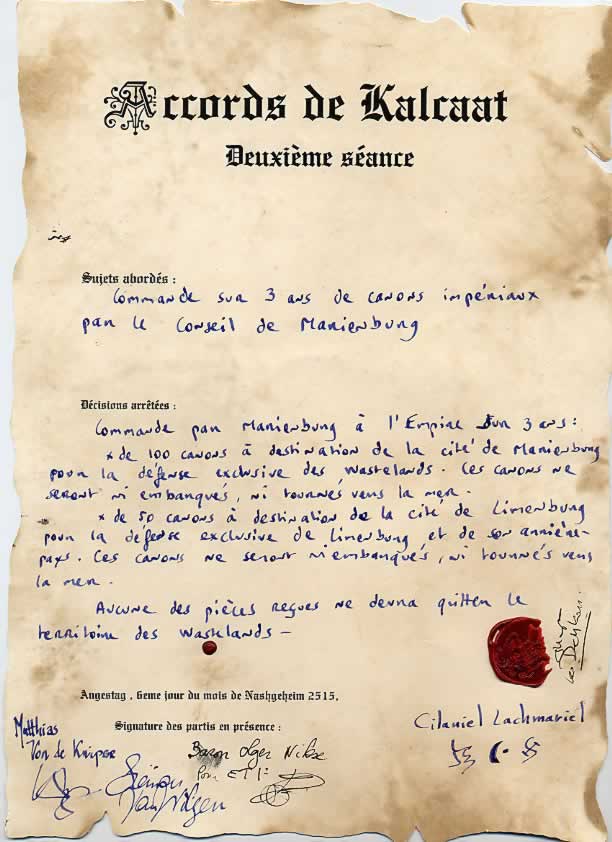 Accords de Kalcaat
Deuxième séance
Sujets abordés :
Commande sur 3 ans de canons impériaux
par le Conseil de Marienburg
Décisions arrêtées :
Commande par Marienburg à l'Empire sur 3 ans :
x de 100 canons à destination de la cité de Marienburg
pour la défense exclusive des Wastelands. Ces canons ne
seront ni embarqués, ni tournés vers la mer.
x de 50 canons à destination de la cité de Limenburg
pour la défense exclusive de Limenburg et de son arrière-
pays. Ces canons ne seront ni embarqués, ni tournés vers
la mer.
Aucune des pièces reçues ne devra quitter le
territoire des Wastelands -
Angestag, 6eme jour du mois de Nashgeheim 2515,
Signature des partis en présence :
Matthias
Von de Kuiper
Baron Olger
Pour
Cilaniel Lachmariel